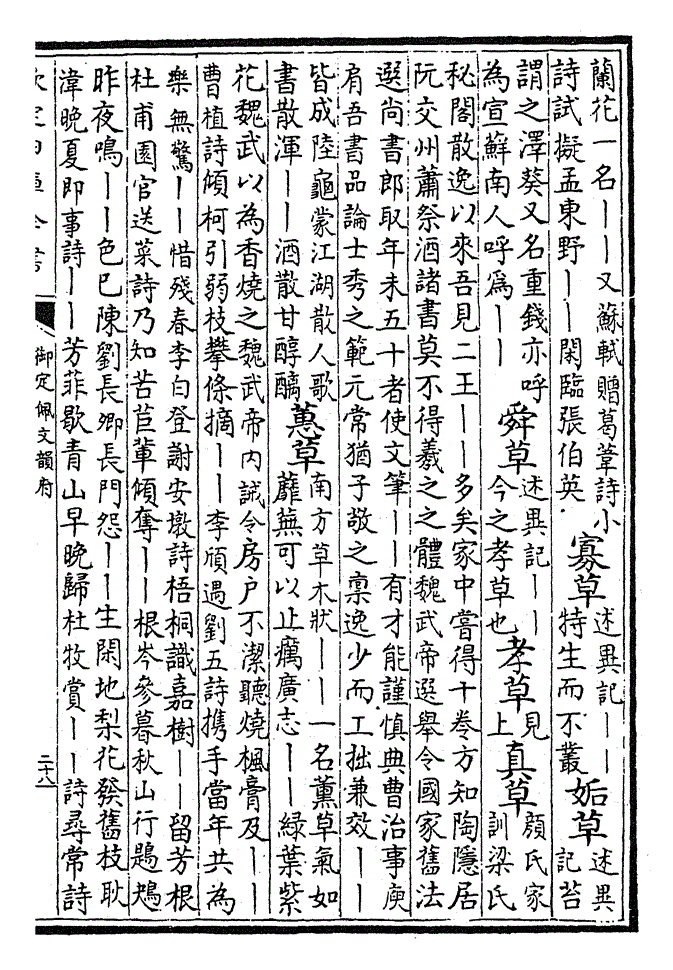 蘭花一名——又蘇軾贈葛葦詩小
詩試擬孟東野——閑臨張伯英
寡草
述異記——
特生而不叢
姤草
述異
記苔
謂之澤葵又名重錢亦呼
為宣蘚南人呼爲——
舜草
述異記——
今之孝草也
孝草
見
上
真草
顔氏家
訓梁氏
秘閣散逸以來吾見二王——多矣家中嘗得十卷方知陶隱居
阮交州蕭祭酒諸書莫不得羲之之體魏武帝選舉令國家舊法
選尚書郎取年未五十者使文筆——有才能謹慎典曹治事庾
肩吾書品論士秀之範元常猶子敬之禀逸少而工拙兼效——
皆成陸龜蒙江湖散人歌
書散渾——酒散甘醇醨
蕙草
南方草木狀——一名薰草氣如
蘼蕪可以止癘廣志——綠葉紫
花魏武以為香燒之魏武帝内誡令房户不潔聽燒楓膏及——
曹植詩傾柯引弱枝攀條摘——李頎遇劉五詩携手當年共為
樂無驚——惜殘春李白登謝安墩詩梧桐識嘉樹——留芳根
杜甫園官送菜詩乃知苦苣輩傾奪——根岑參暮秋山行鶗鴂
昨夜鳴——色巳陳劉長卿長門怨——生閑地梨花發舊枝耿
湋晚夏即事詩——芳菲歇青山早晚歸杜牧賞——詩尋常詩
欽定四庫全書
御定佩文韻府
二十八